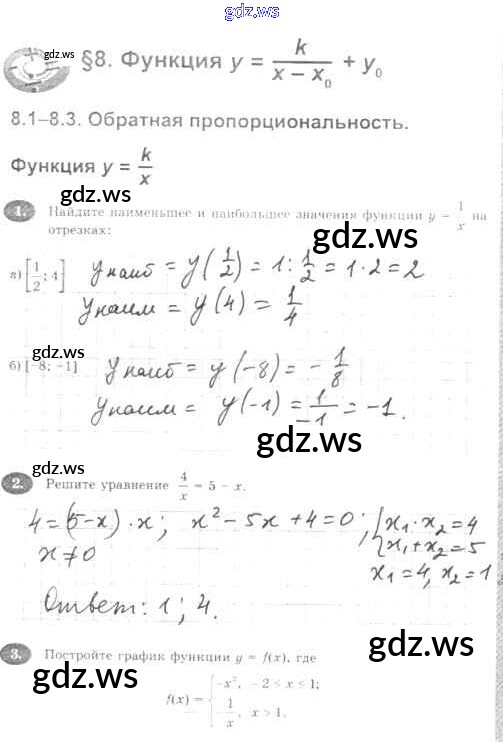 gdz.ws
gdz.ws
§8. Функция y = k/(x − x₀) + y₀
8.1–8.3. Обратная пропорциональность.
Функция y = k/x
gdz.ws
gdz.ws
1. Найдите наименьшее и наибольшее значения функции y = 1/x на
отрезках:
а) [1/2; 4] yнаиб = y(1/2) = 1 : 1/2 = 1 · 2 = 2
yнаим = y(4) = 1/4
gdz.ws
б) [−8; −1] yнаиб = y(−8) = −1/8
yнаим = y(−1) = 1/−1 = −1.
gdz.ws
gdz.ws
2. Решите уравнение 4/x = 5 − x.
4 = (5−x) · x; x² − 5x + 4 = 0; {x₁ · x₂ = 4
x ≠ 0 {x₁ + x₂ = 5
x₁ = 4, x₂ = 1
Ответ: 1; 4.
gdz.ws
gdz.ws
3. Постройте график функции y = f(x), где
f(x) = {−x², −2 ≤ x ≤ 1;
−1/x, x > 1.
gdz.ws
gdz.ws